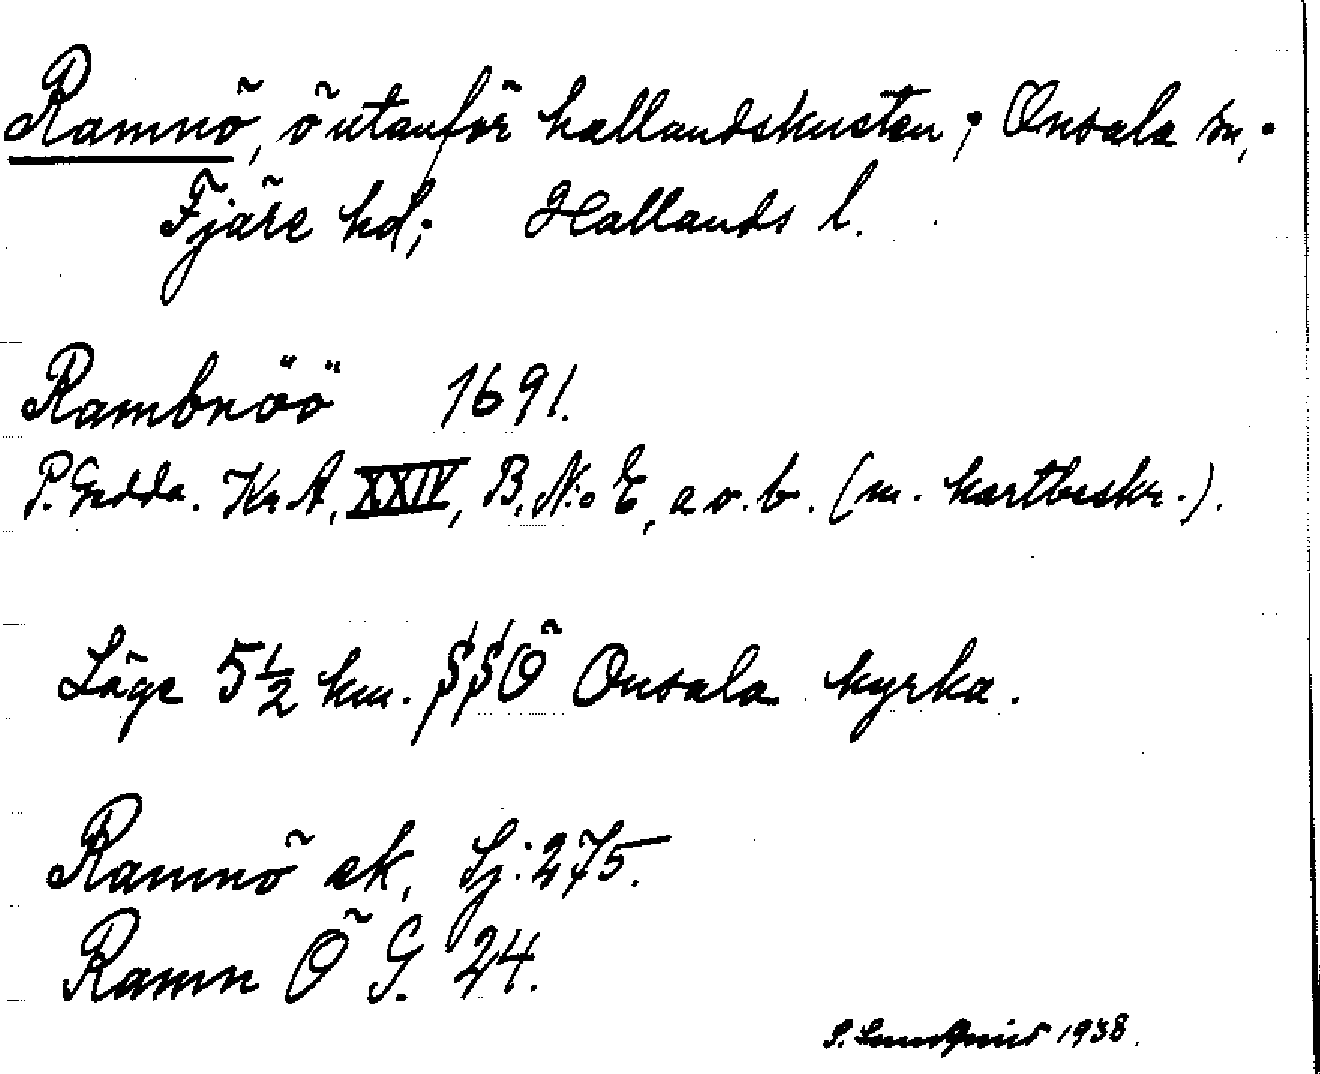 Ramnö, ö utanför hallandskusten; Onsala sn,;
Fjäre hd; Hallands l.
Rambnöö 1691.
P. Gedda. Kr. A, XXIV, B. N:o E, a o. b. (m. kartbeskr.).
Läge 5 1/2 km. SSÖ Onsala kyrka.
Ramnö ek, Sj: 275.
Ramn Ö G. 24.
S. Lundqvist 1938.